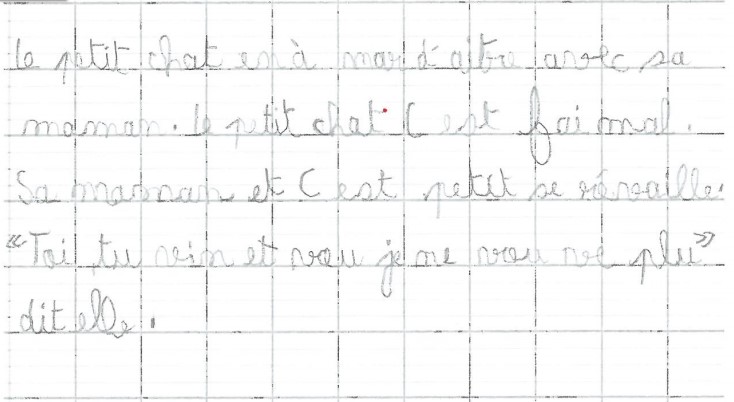 le petit chat en à mar d'aitre avec sa
maman. le petit chat C est fai mal.
Sa maman et C est petit se révaille.
"Toi tu vin et vou je ne vou voi plu"
dit elle.